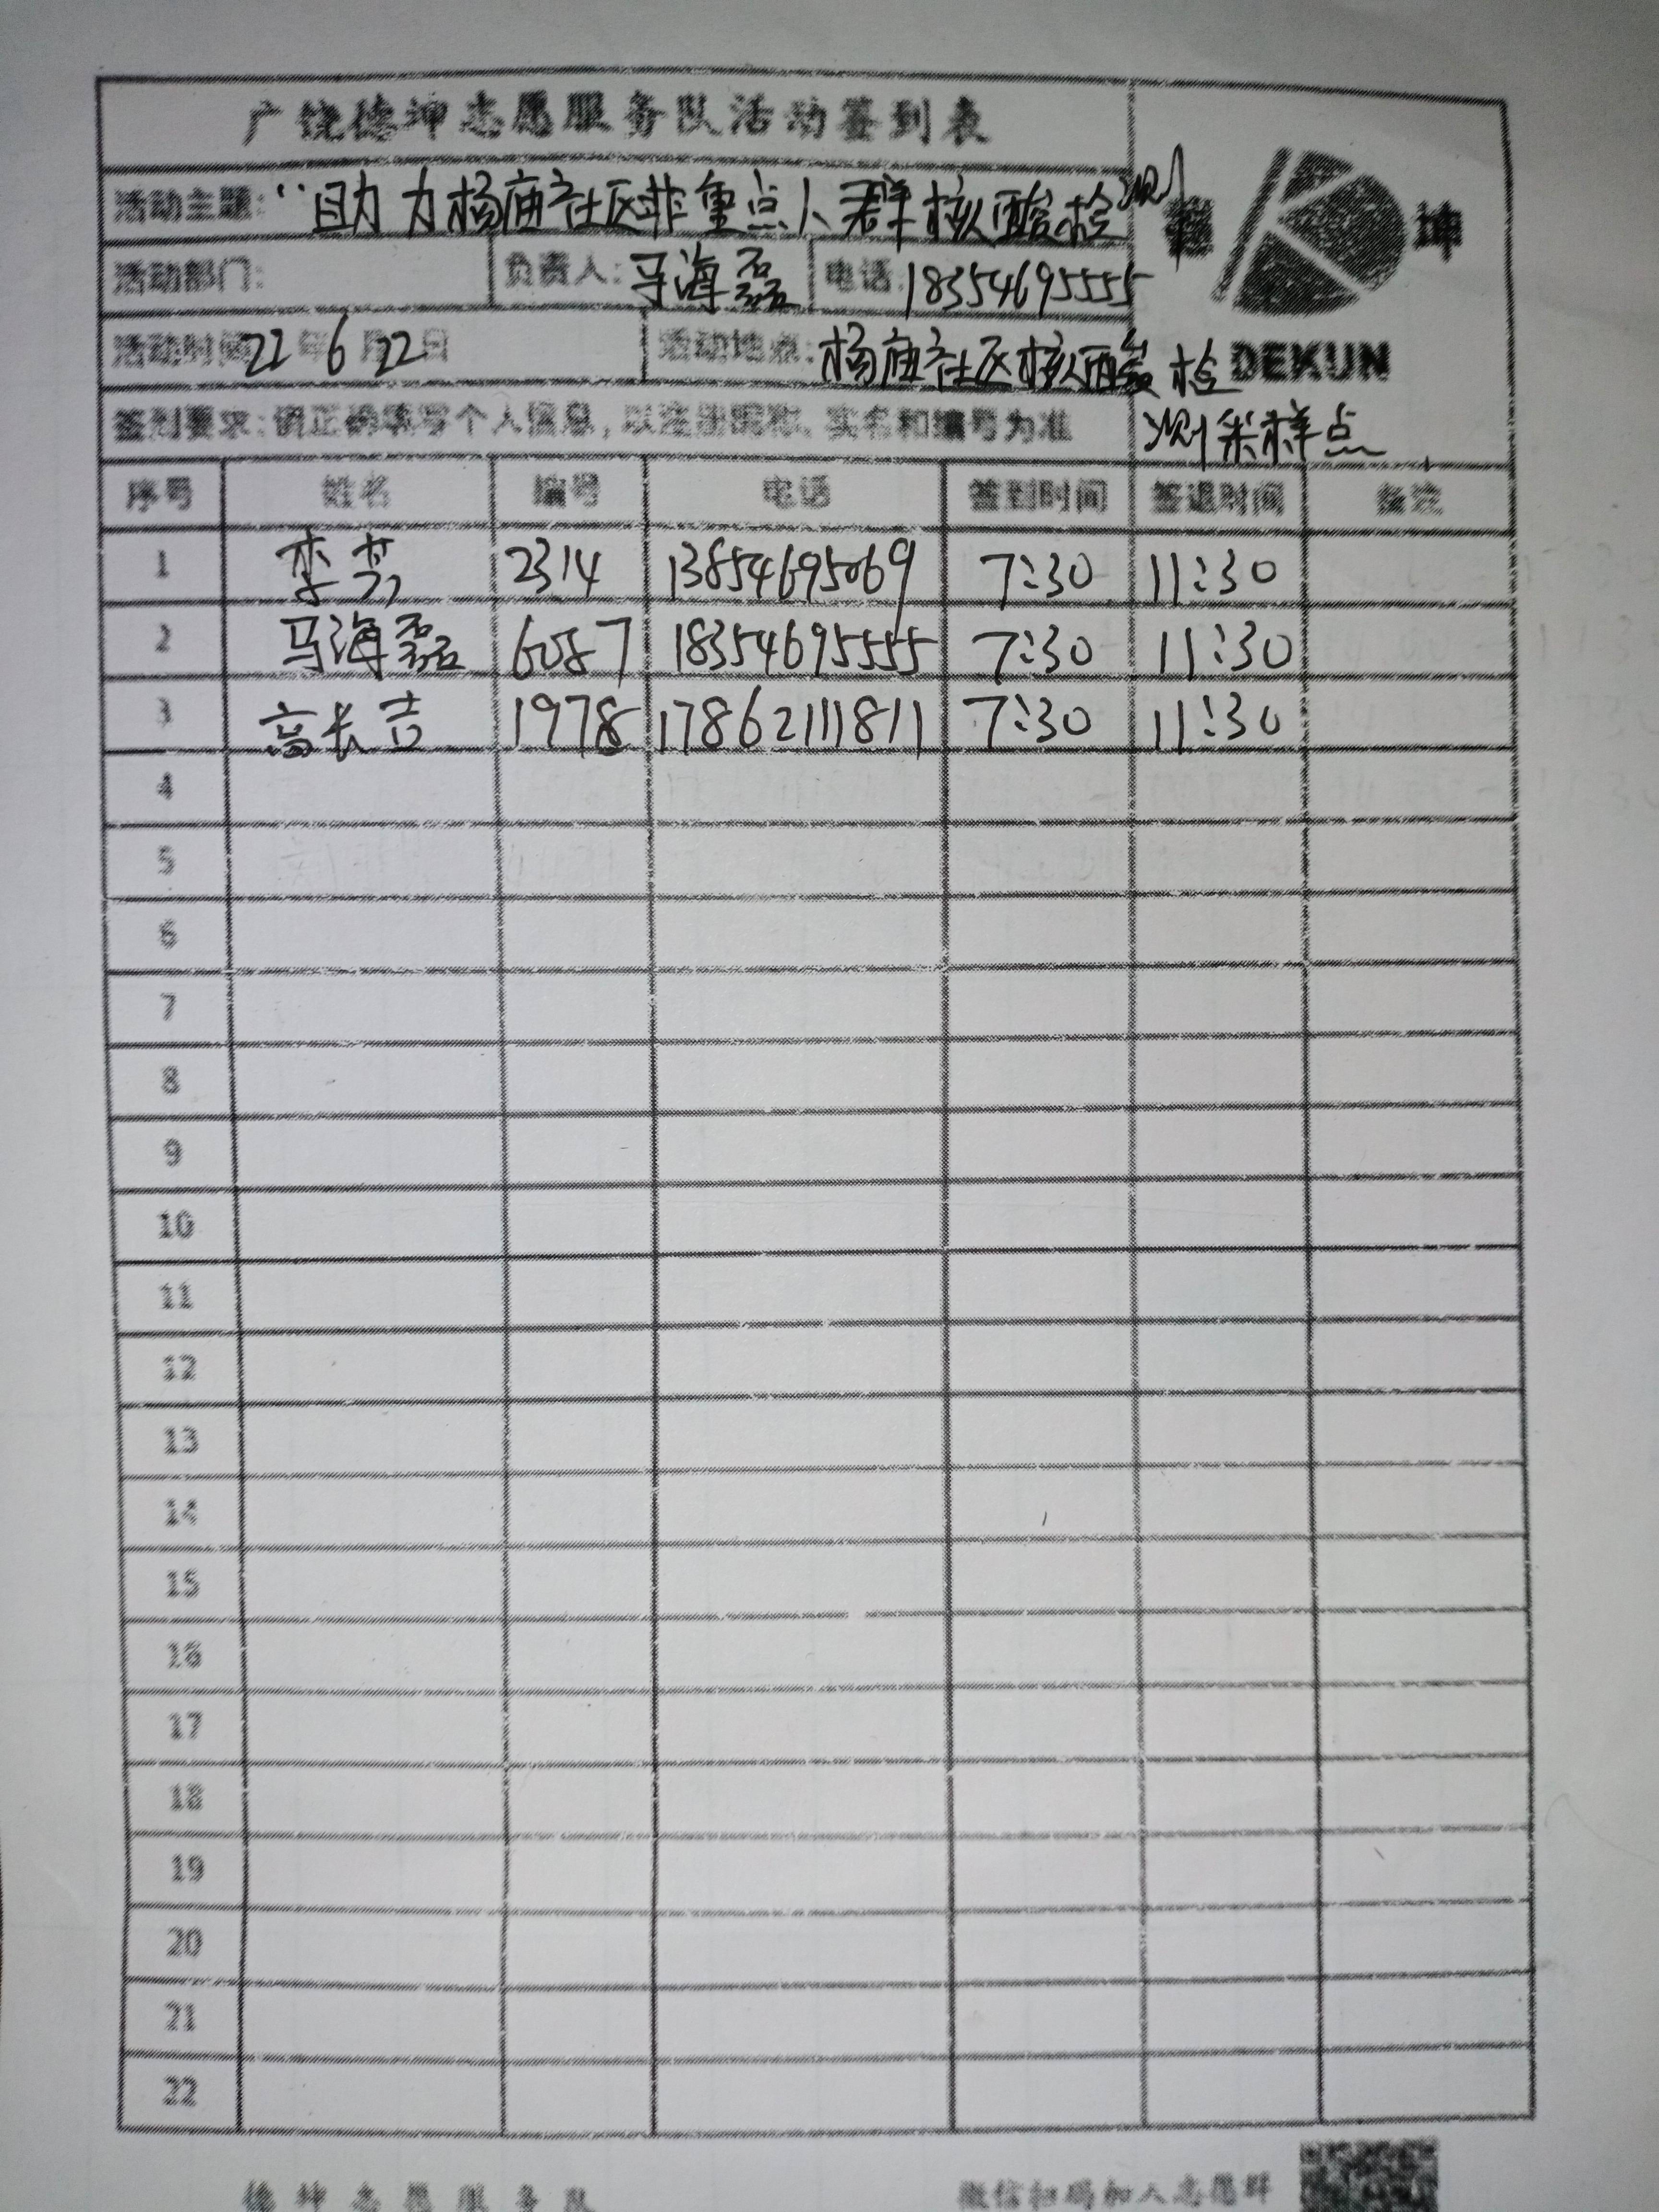 广饶德坤志愿服务队活动签到表
活动主题:“助力杨庙社区非重点人群核酸检测”
德 坤
活动部门: 负责人: 马海磊 电话: 18354695555
活动时间 22年6月22日 活动地点: 杨庙社区核酸检测采样点
DEKUN
签到要求: 请正确填写个人信息, 以注册昵称、实名和编号为准
序号 姓名 编号 电话 签到时间 签退时间 备注
1 李芳 2314 13854695069 7:30 11:30
2 马海磊 6087 18354695555 7:30 11:30
3 高长吉 1978 17862111811 7:30 11:30
4
5
6
7
8
9
10
11
12
13
14
15
16
17
18
19
20
21
22
德坤志愿服务队 微信扫码加入志愿群